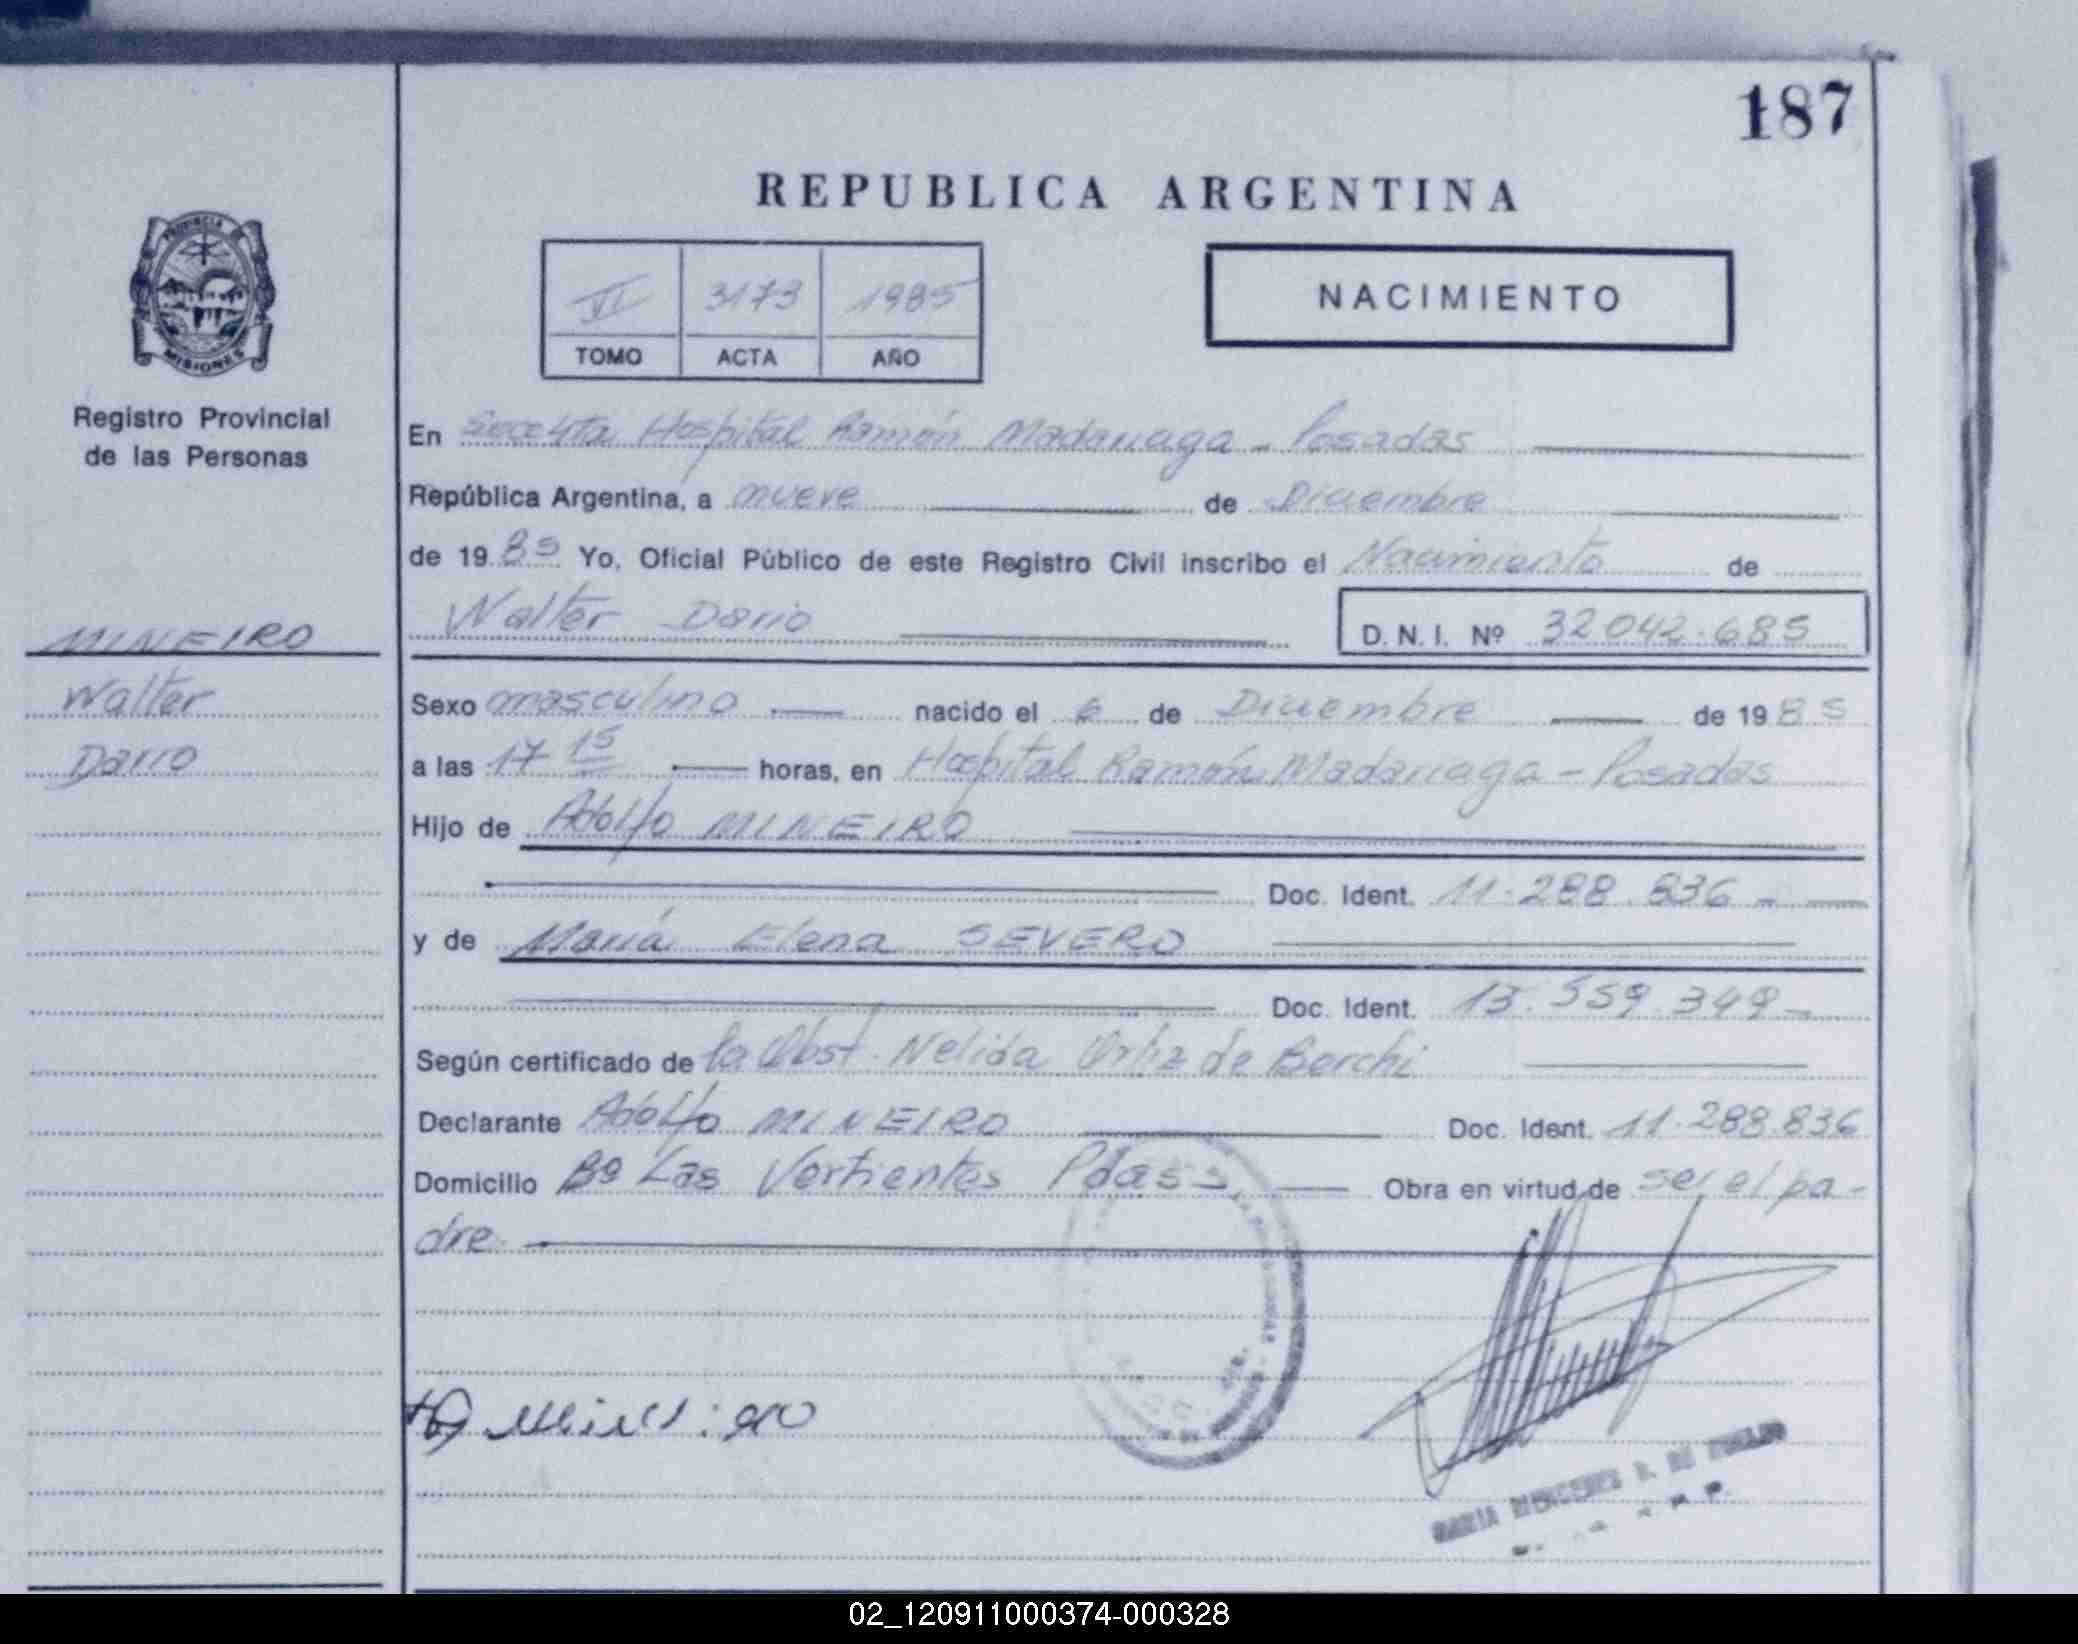 187
REPUBLICA ARGENTINA
PROVINCIA
MISIONES
VI 3173 1985
TOMO ACTA AÑO
NACIMIENTO
Registro Provincial
de las Personas
MINEIRO
Walter
Dario
En Secc 4ta Hospital Ramón Madariaga - Posadas
República Argentina, a nueve de Diciembre
de 1985 Yo, Oficial Público de este Registro Civil inscribo el Nacimiento de
Walter Dario D. N. I. Nº 32042.685
Sexo masculino nacido el 6 de Diciembre de 1985
a las 17 15 horas, en Hospital Ramón Madariaga - Posadas
Hijo de Adolfo MINEIRO
Doc. Ident. 11.288.836 -
y de María Elena SEVERO
Doc. Ident. 13.559.349 -
Según certificado de la Obst. Nelida Ortiz de Borchi
Declarante Adolfo MINEIRO Doc. Ident. 11.288.836
Domicilio Bº Las Vertientes Pdas Obra en virtud de ser el pa-
dre
MARIA MERCEDES
02_120911000374-000328